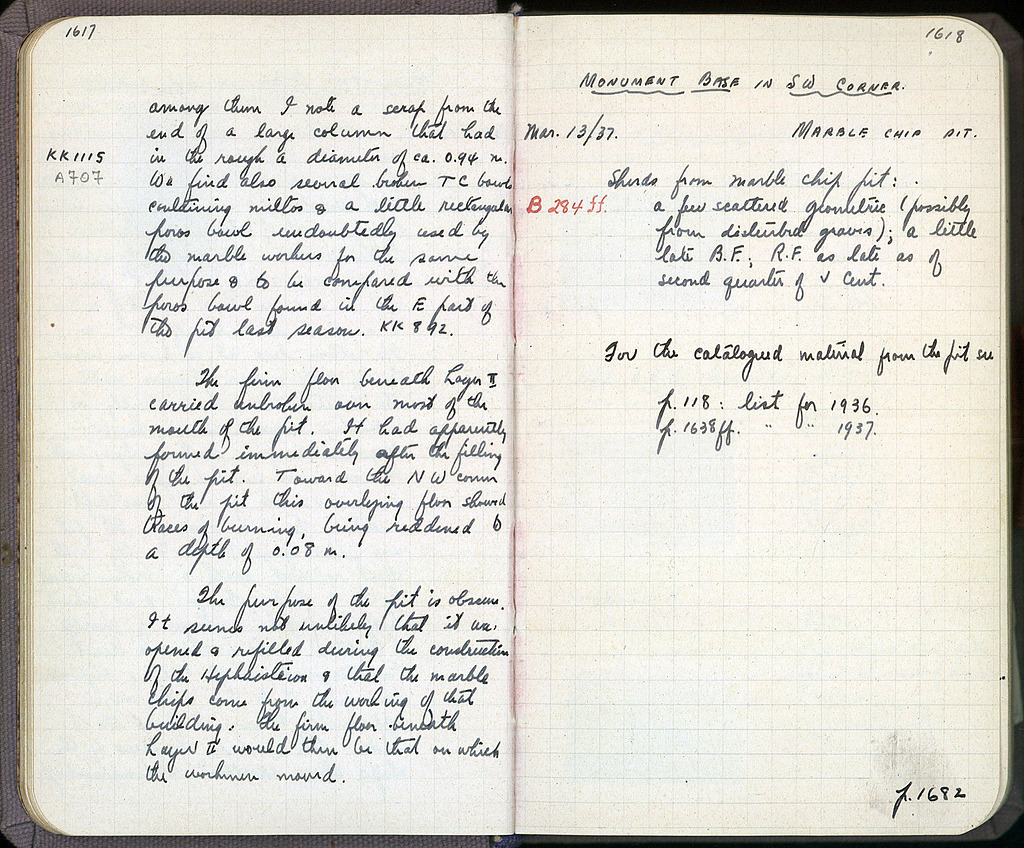 1617
among them I note a scrap from the
end of a large column that had
KK 1115
in the rough a diameter of ca. 0.94 m.
A707
We find also several broken TC bowls
containing miltos & a little rectangular
poros bowl undoubtedly used by
the marble workers for the same
purpose & to be compared with the
poros bowl found in the E part of
the pit last season. KK 892.
The firm floor beneath Layer II
carried unbroken over most of the
mouth of the pit. It had apparently
formed immediately after the filling
of the pit. Toward the NW corner
of the pit this overlying floor showed
traces of burning, being reddened to
a depth of 0.08 m.
The purpose of the pit is obscure.
It seems not unlikely that it was
opened & refilled during the construction
of the Hephaisteion & that the marble
chips come from the working of that
building. The firm floor beneath
Layer II would then be that on which
the workmen moved.
1618
MONUMENT BASE IN SW CORNER.
Mar. 13/37. MARBLE CHIP PIT.
Sherds from marble chip pit:
B 284 ff. a few scattered geometric (possibly
from disturbed graves); a little
late B.F.; R.F. as late as of
second quarter of V Cent.
For the catalogued material from the pit see
p. 118: list for 1936.
p. 1638ff. " " 1937.
p. 1682